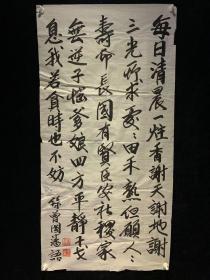 每日清晨一炷香謝天謝地謝
三光所求處々田禾熟但願人々
壽命長國有賢臣安社稷家
無逆子惱爹娘四方平靜干戈
息我若貧時也不妨 錄曾國藩語